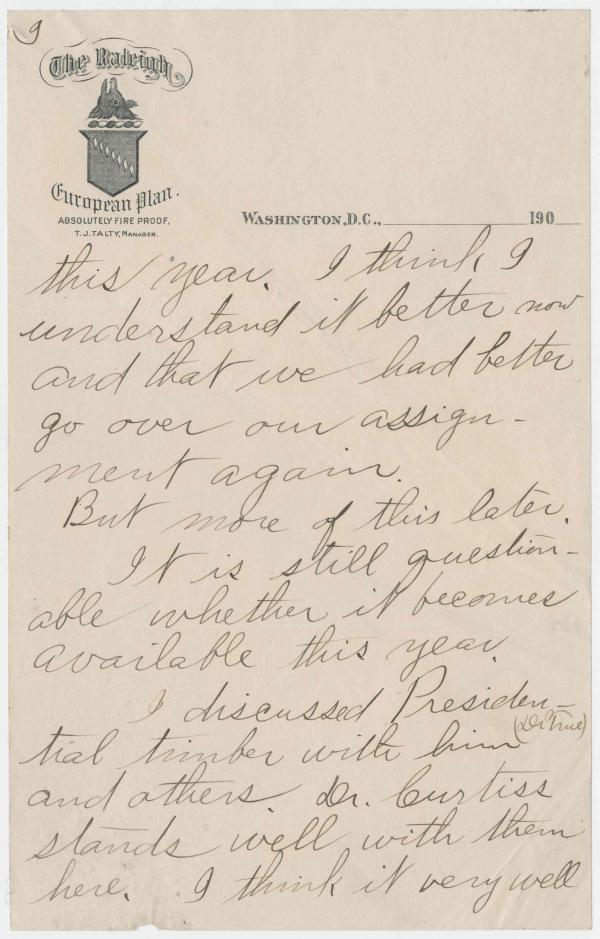 9
The Raleigh
European Plan.
ABSOLUTELY FIRE PROOF,
T. J. TALTY, MANAGER.
WASHINGTON, D.C., 190
this year. I think I
understand it better now
and that we had better
go over our assign-
ment again.
But more of this later.
It is still question-
able whether it becomes
available this year.
I discussed Presiden-
tial timber with him (Dr True)
and others. Dr. Curtiss
stands well with them
here. I think it very well